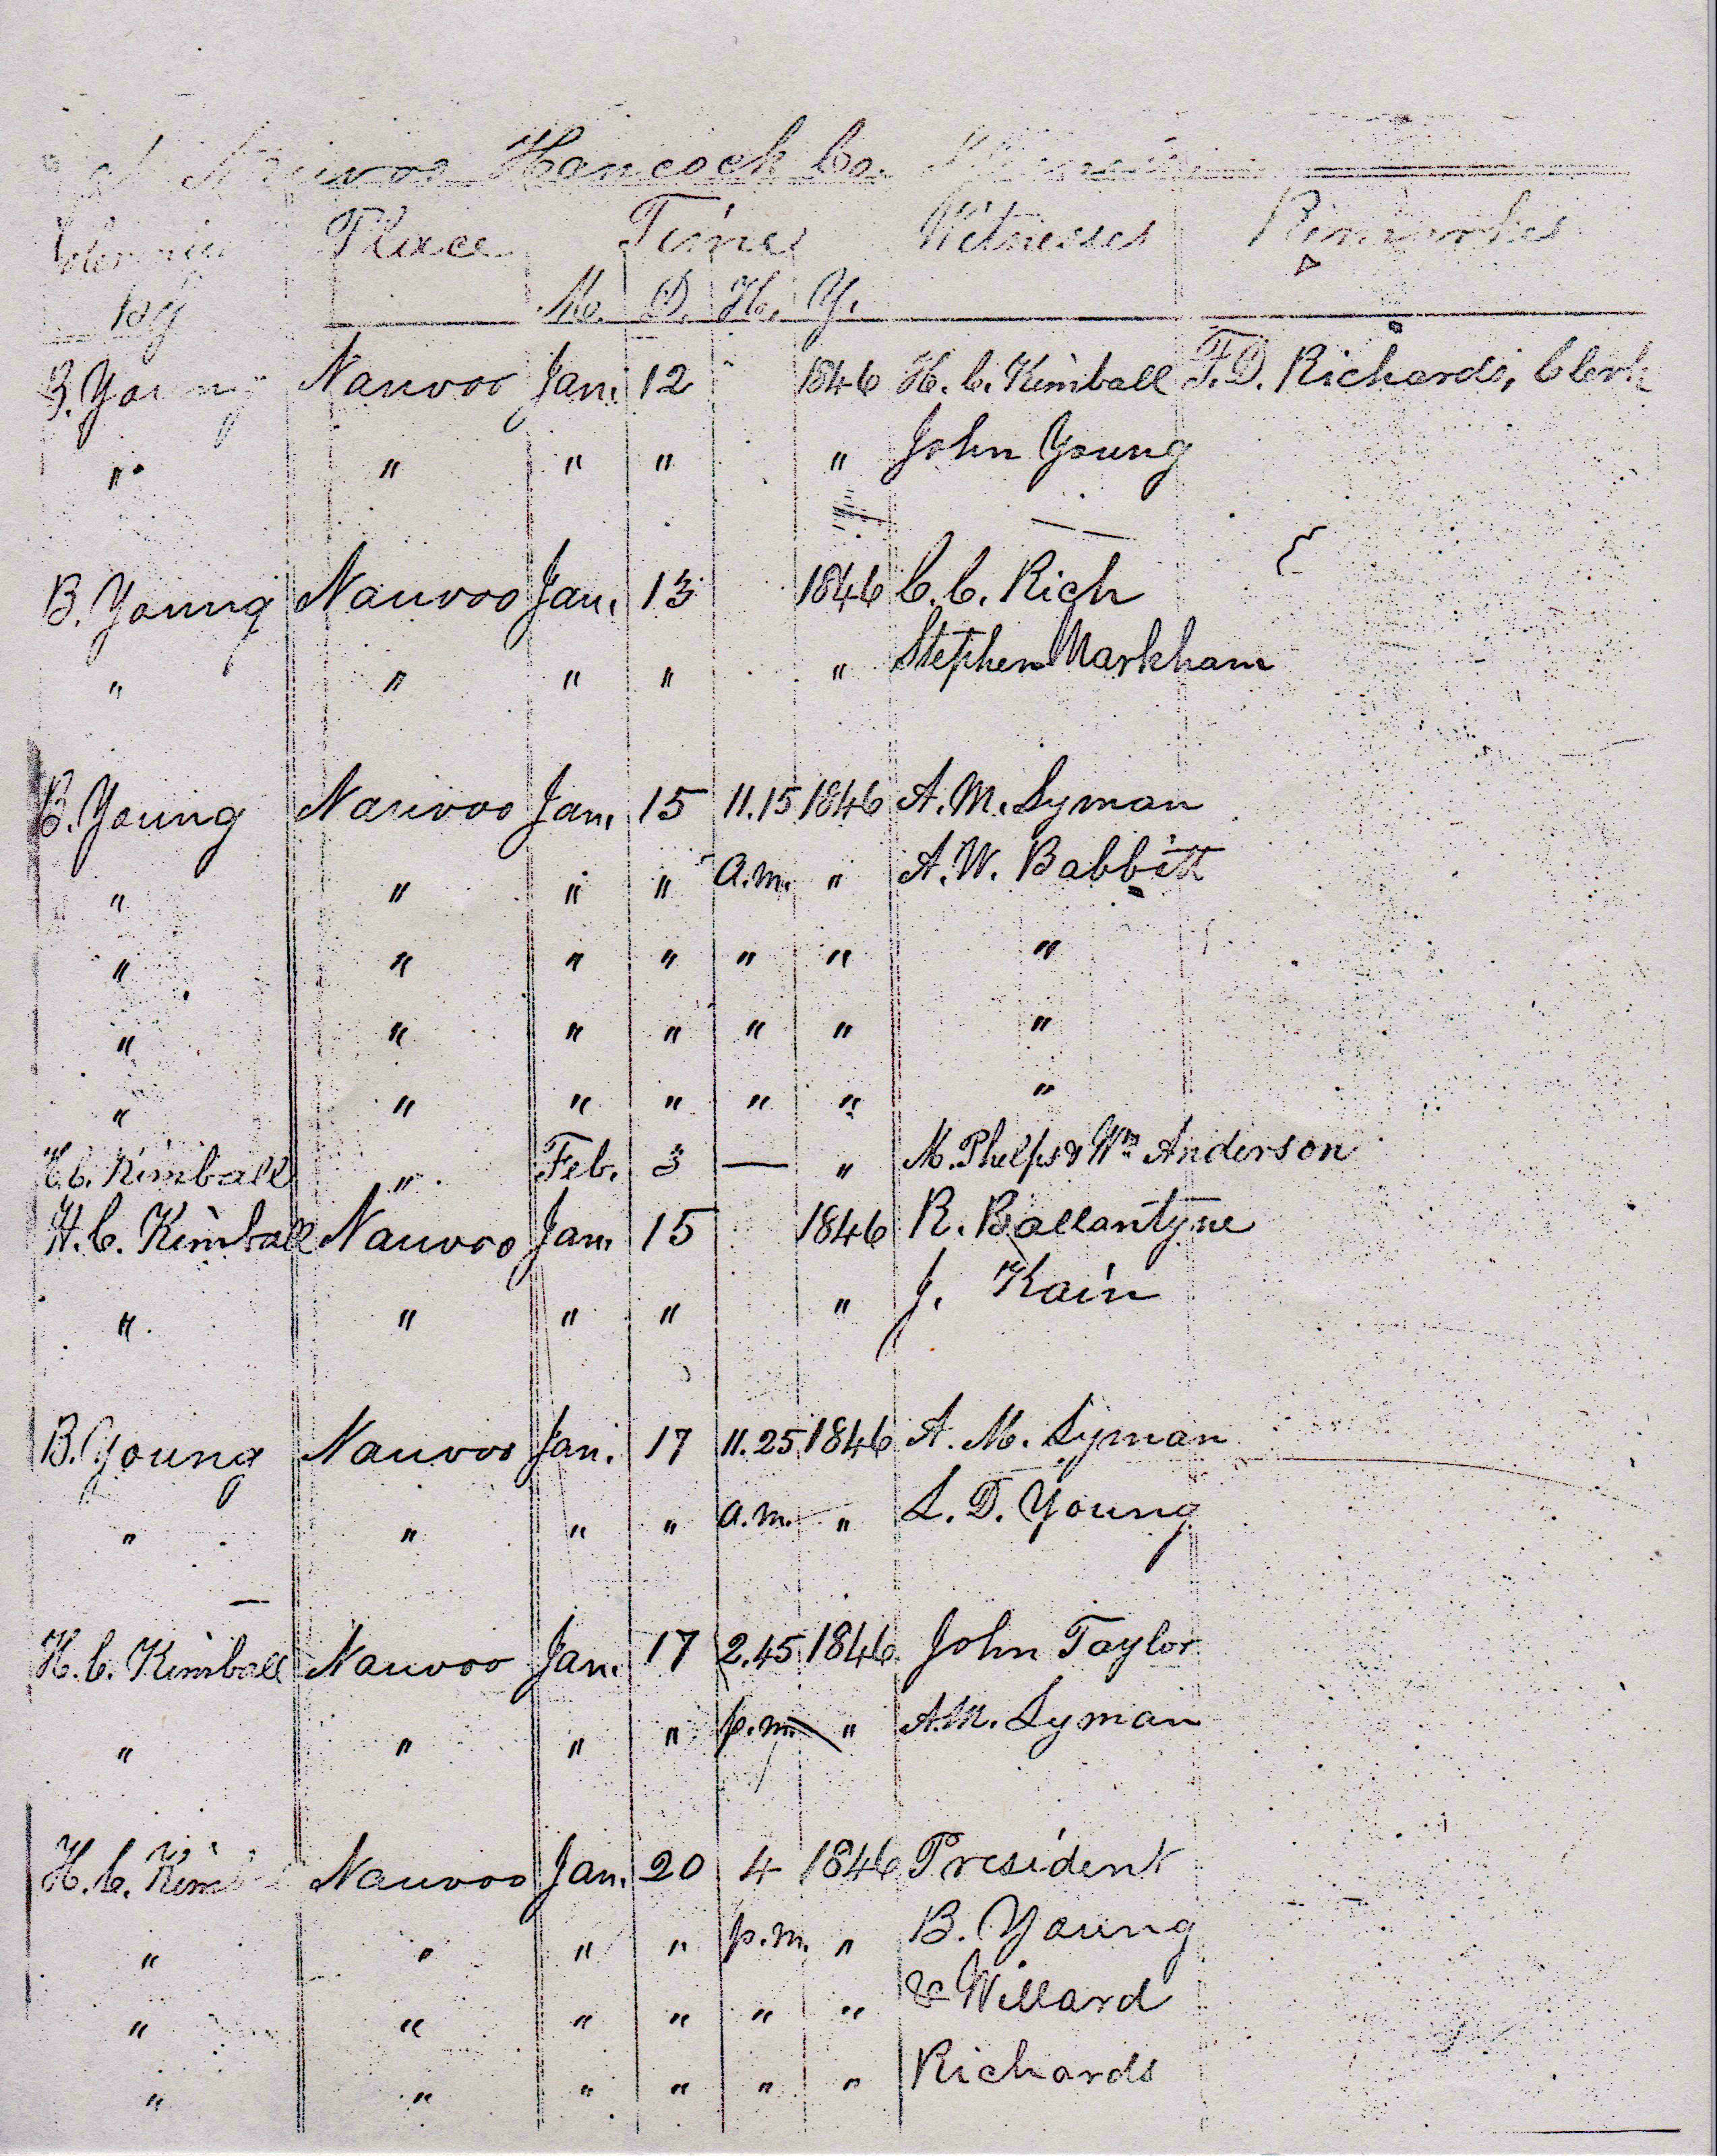 at Nauvoo Hancock Co. Illinois
Place Time Witnesses Remarks
by M. D. H. Y.
B. Young Nauvoo Jan. 12 1846 H. C. Kimball F. D. Richards, Clerk
" " " " " John Young
B. Young Nauvoo Jan. 13 1846 C. C. Rich
" " " " " Stephen Markham
B. Young Nauvoo Jan. 15 11.15 1846 A. M. Lyman
" " " " a.m. " A. W. Babbitt
" " " " " " "
" " " " " " "
" " " " " " "
H. C. Kimball " Feb. 3 — " M. Phelps & Wm Anderson
H. C. Kimball Nauvoo Jan. 15 1846 R. Ballantyne
" " " " " J. Kain
B. Young Nauvoo Jan. 17 11.25 1846 A. M. Lyman
" " " " a.m. " L. D. Young
H. C. Kimball Nauvoo Jan. 17 2.45 1846 John Taylor
" " " " p.m. " A. M. Lyman
H. C. Kim Nauvoo Jan. 20 4 1846 President
" " " " p.m. " B. Young
" " " " " " & Willard
" " " " " " Richards